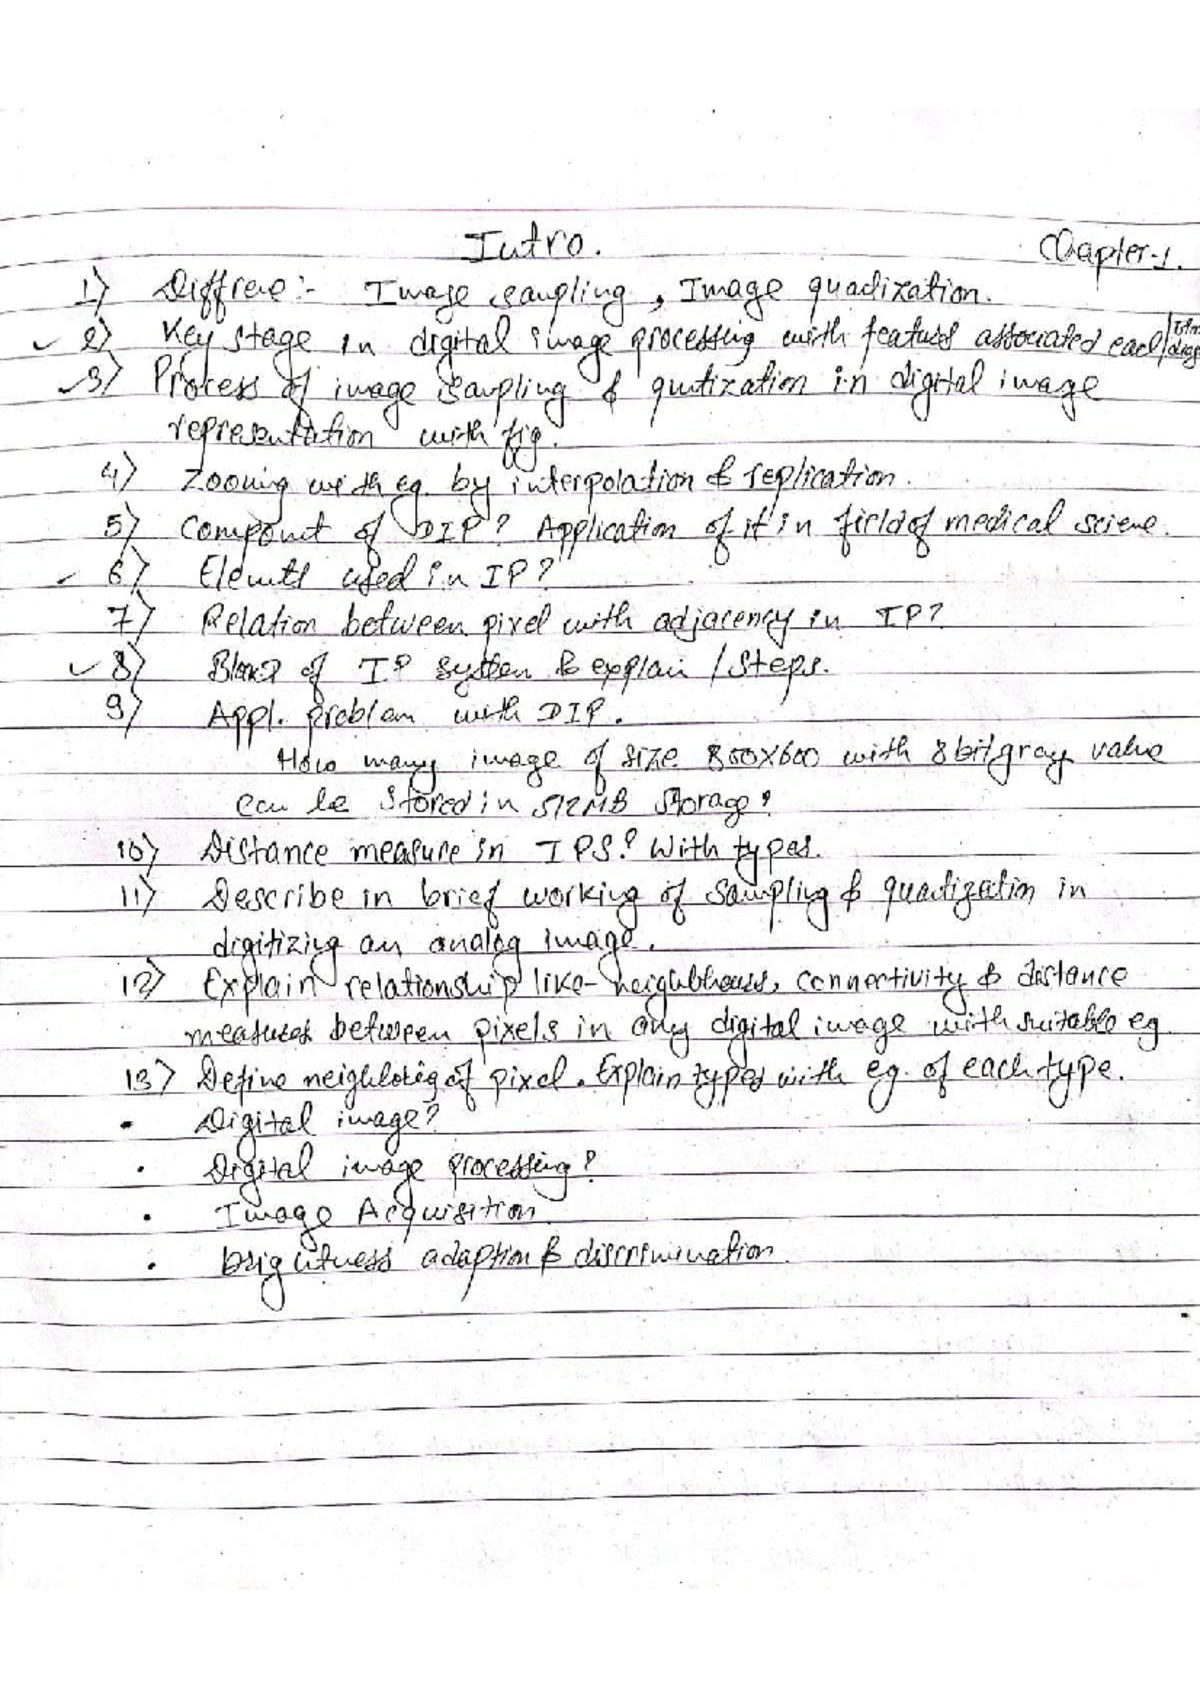 Intro.
Chapter-1.
1) Diffrence:- Image sampling, Image quatization.
2) Key stage in digital image processing with features associated each
3) Process of image sampling & qutization in digital image
representation with fig.
4) Zooming with eg. by interpolation & replication.
5) Component of DIP? Application of it in field of medical science.
6) Elements used in IP?
7) Relation between pixel with adjacency in IP?
8) Block of IP system & explain / Steps.
9) Appl. problem with DIP.
How many image of size 800X600 with 8 bit gray value
can be stored in 512MB storage?
10) Distance measure in IPS? With types.
11) Describe in brief working of sampling & quatization in
digitizing an analog image.
12) Explain relationship like- neighbhours, connectivity & distance
measures between pixels in any digital image with suitable eg.
13) Define neighboring of pixel. Explain types with eg. of each type.
• Digital image?
• Digital image processing?
• Image Acquisition
• brightness adaption & discrimination.